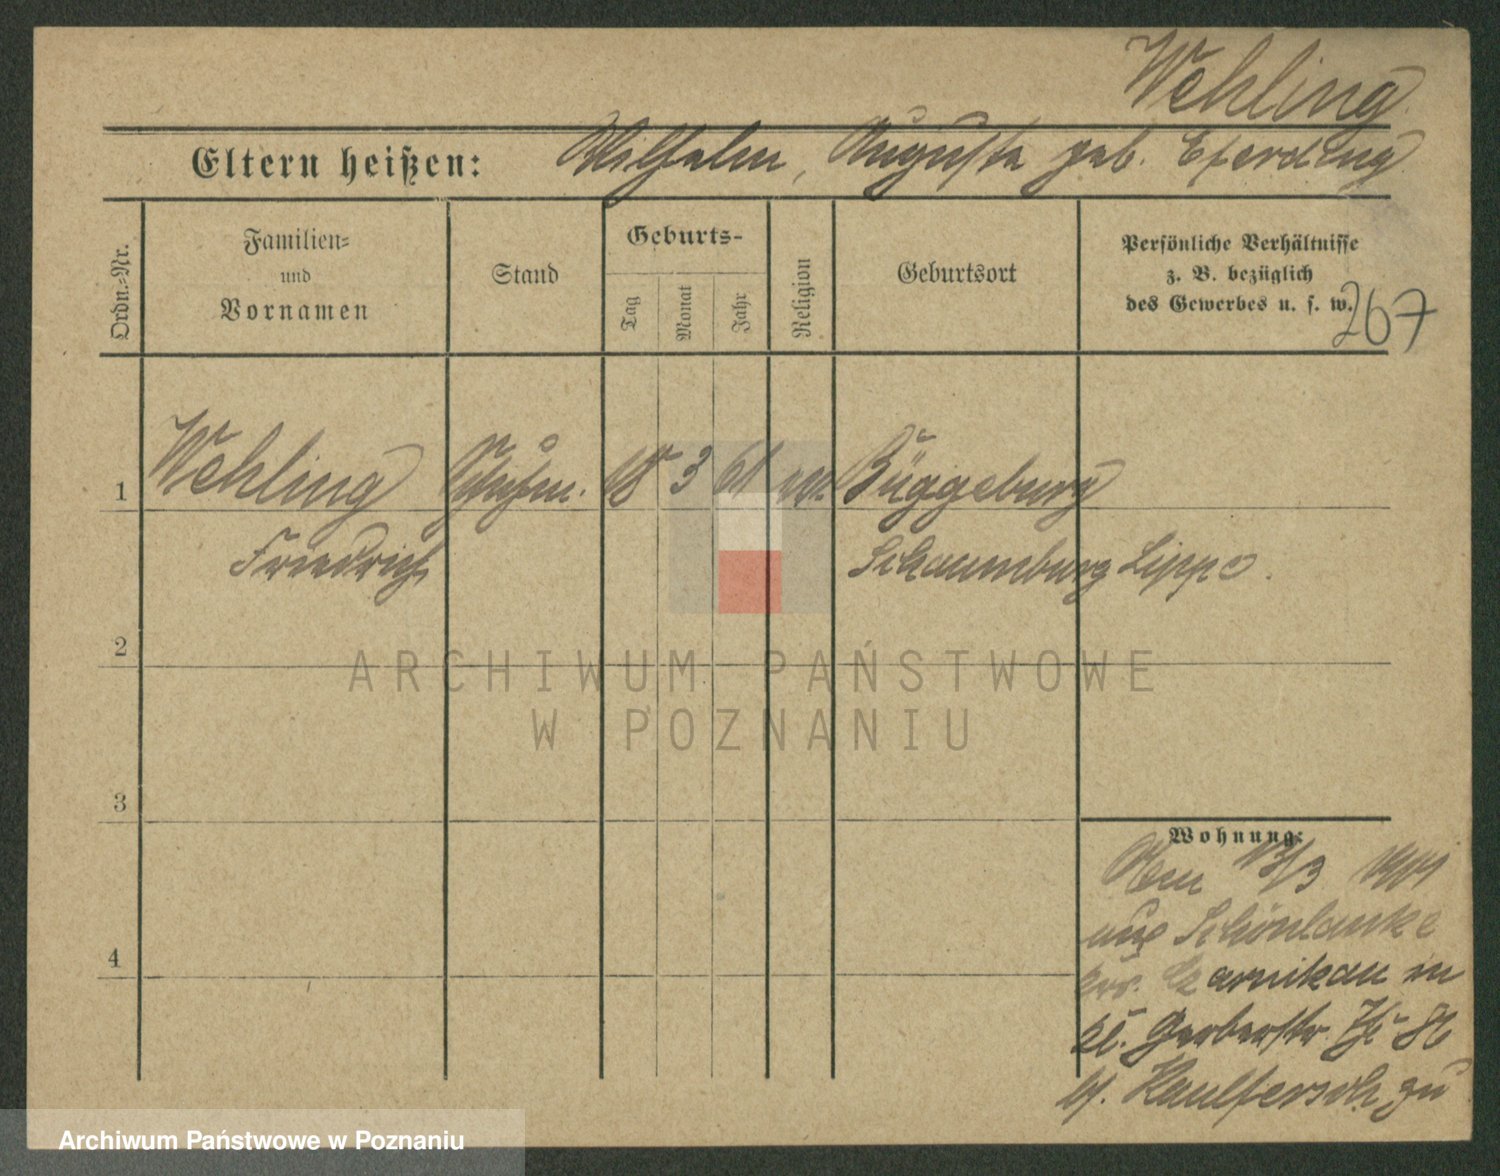 Wehling
Eltern heißen: Wilhelm, Auguste geb. Eferding
Ordn.-Nr.
Familien-
und
Vornamen
Stand
Geburts-
Tag
Monat
Jahr
Religion
Geburtsort
Persönliche Verhältnisse
z. B. bezüglich
des Gewerbes u. s. w.
267
1 Wehling 18 3 61 Büggeburg
Friedrich Schaumburg Lippe.
2
3
4
Wohnung:
13/3 1901
aus Schönlanke
Czarnikau in
kl. Gerberstr.
zu
ARCHIWUM PAŃSTWOWE
W POZNANIU
Archiwum Państwowe w Poznaniu